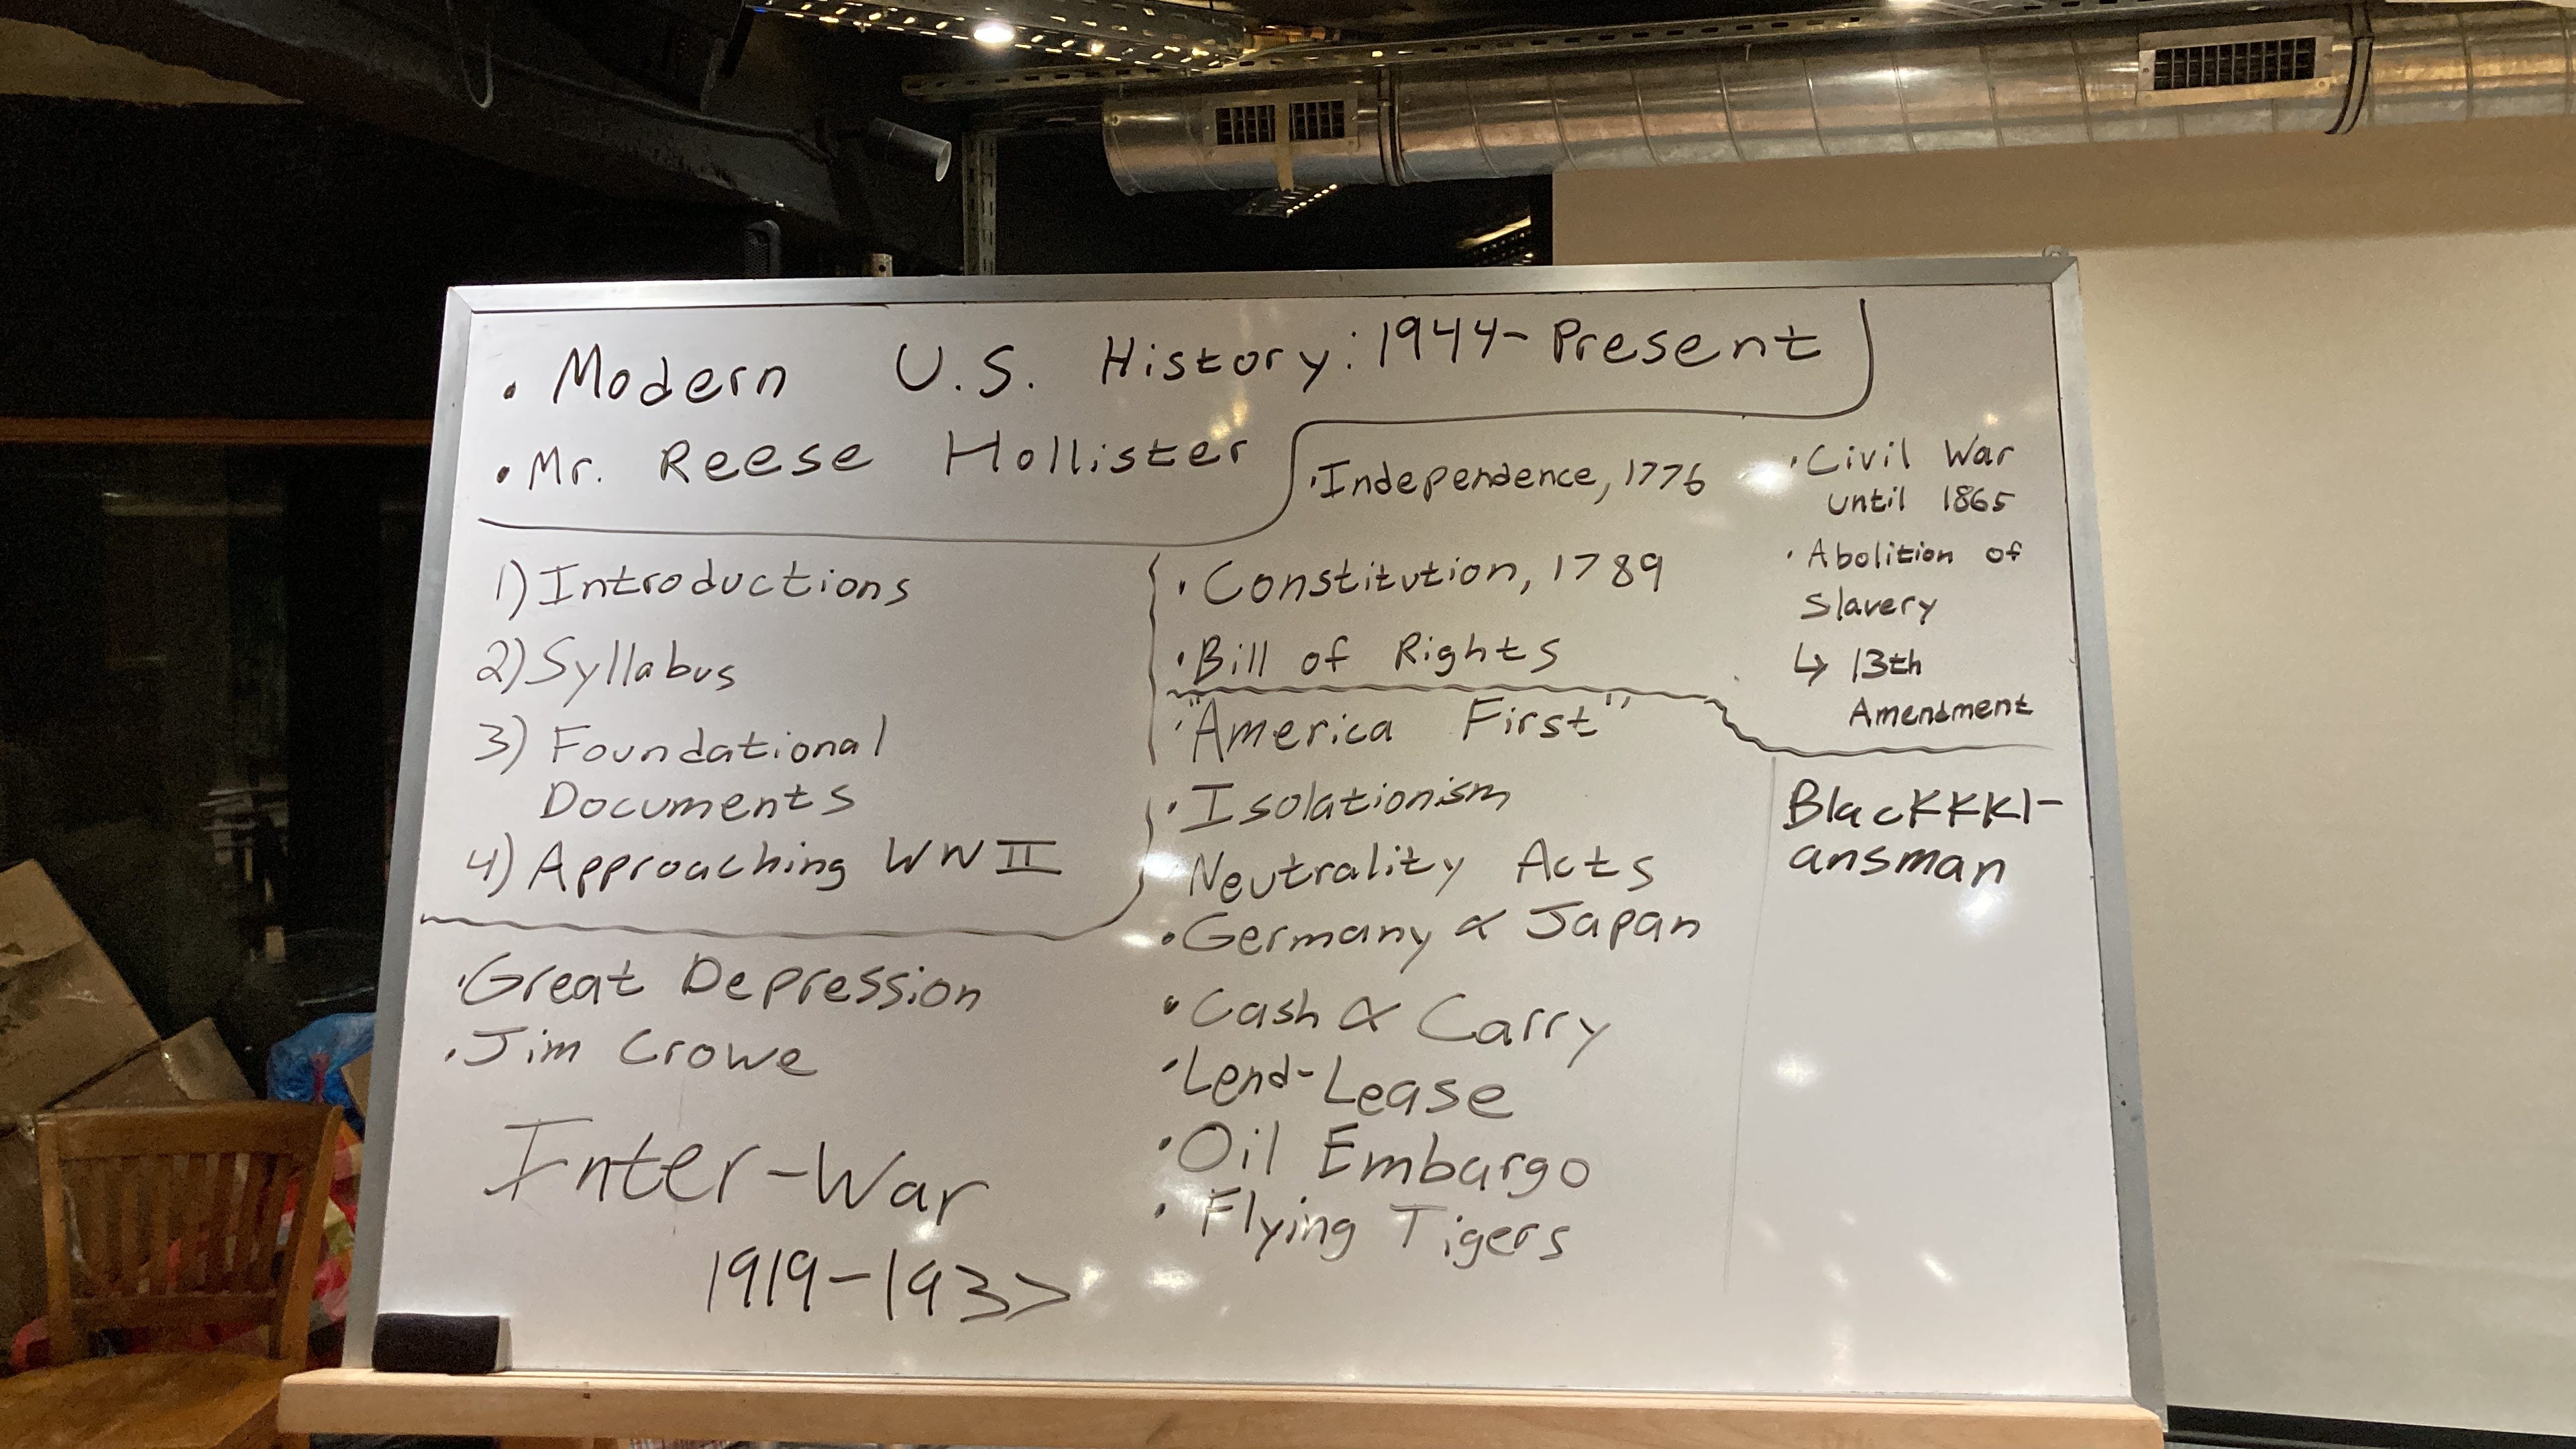 • Modern U.S. History: 1944- Present
• Mr. Reese Hollister
1) Introductions
2) Syllabus
3) Foundational
Documents
4) Approaching WW II
• Great Depression
• Jim Crowe
Inter-War
1919-1937
• Independence, 1776
• Constitution, 1789
• Bill of Rights
• "America First"
• Isolationism
Neutrality Acts
• Germany & Japan
• Cash & Carry
• Lend-Lease
• Oil Embargo
• Flying Tigers
• Civil War
until 1865
• Abolition of
Slavery
↳ 13th
Amendment
BlacKKKl-
ansman